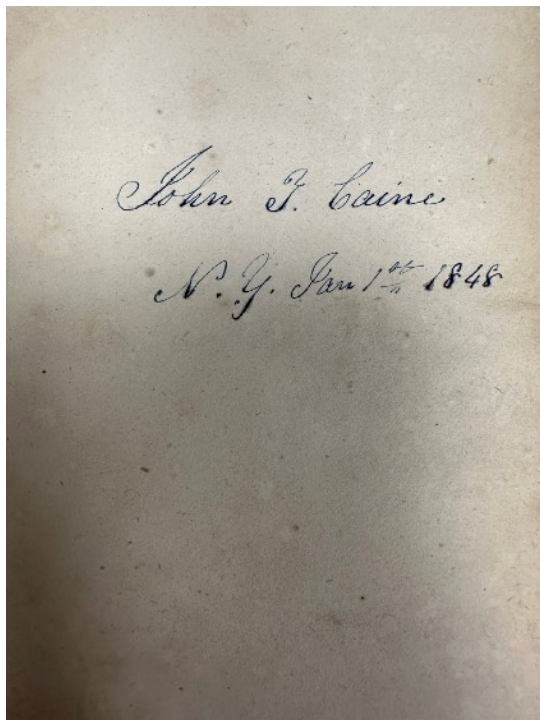 John T. Caine
N. Y. Jan 1st 1848